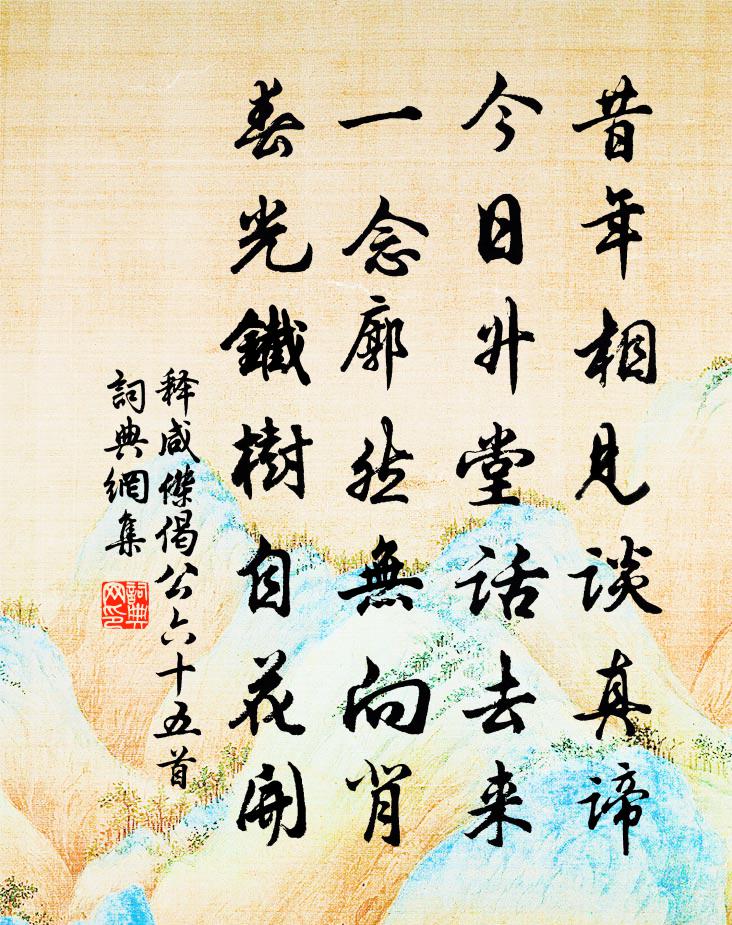 昔年相見談真諦
今日升堂話去来
一念廓然無向背
春光鐵樹自花開
释咸傑偈公六十五首
詞典網集
詞典
网印